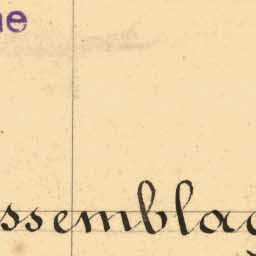 ne
ssemblag